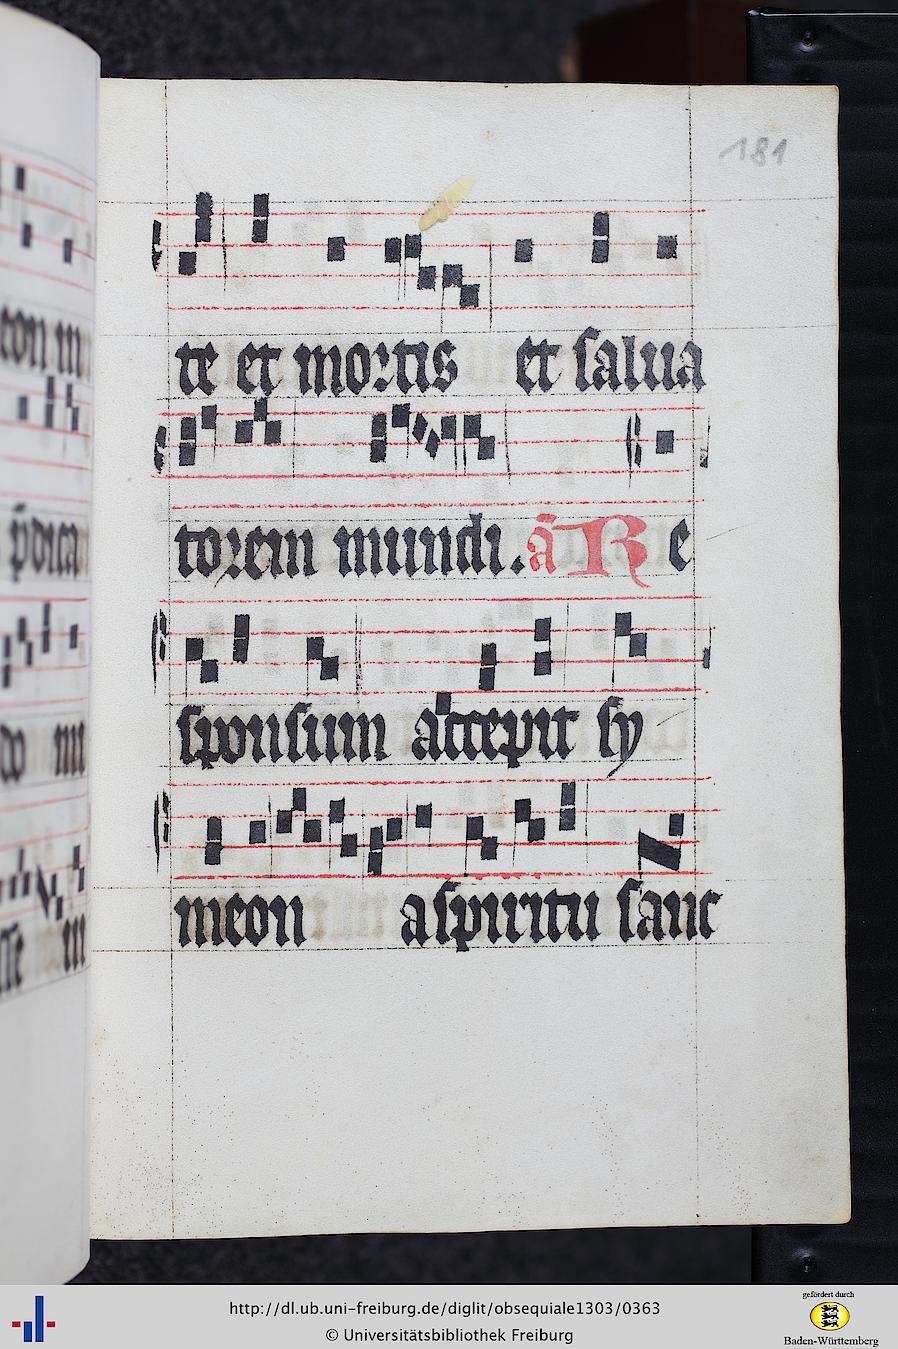 181
te et mortis et salua
torem mundi. a R e
sponsum accepit sy
meon a spiritu sanc
eon m
p̄dica
do m
sse m
http://dl.ub.uni-freiburg.de/diglit/obsequiale1303/0363
© Universitätsbibliothek Freiburg
gefördert durch
Baden-Württemberg